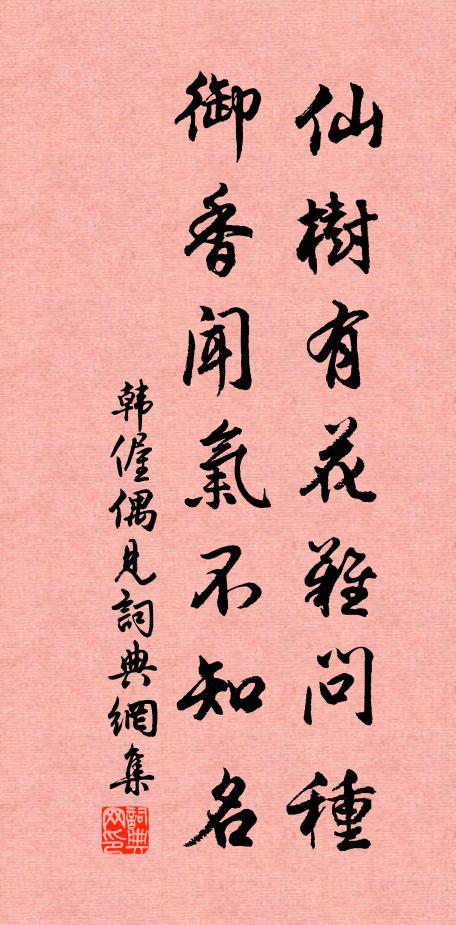 仙樹有花難問種
御香聞氣不知名
韩偓偶見詞典網集
詞典网印